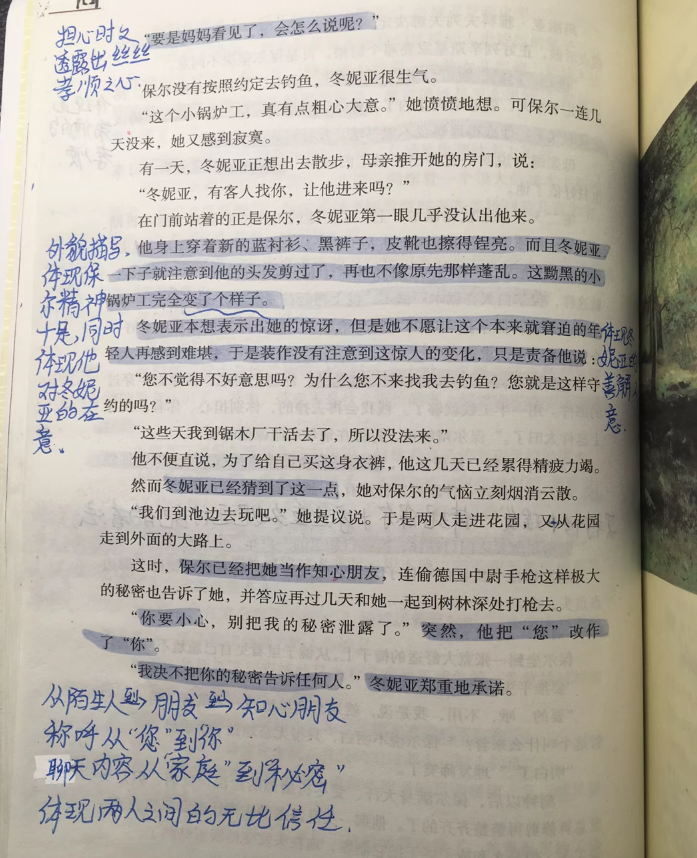 担心时又
透露出丝丝
孝顺之心.
“要是妈妈看见了，会怎么说呢？”
保尔没有按照约定去钓鱼，冬妮亚很生气。
“这个小锅炉工，真有点粗心大意。”她愤愤地想。可保尔一连几
天没来，她又感到寂寞。
有一天，冬妮亚正想出去散步，母亲推开她的房门，说：
“冬妮亚，有客人找你，让他进来吗？”
在门前站着的正是保尔，冬妮亚第一眼几乎没认出他来。
他身上穿着新的蓝衬衫、黑裤子，皮靴也擦得锃亮。而且冬妮亚
一下子就注意到他的头发剪过了，再也不像原先那样蓬乱。这黝黑的小
锅炉工完全变了个样子。
冬妮亚本想表示出她的惊讶，但是她不愿让这个本来就窘迫的年
轻人再感到难堪，于是装作没有注意到这惊人的变化，只是责备他说：
“您不觉得不好意思吗？为什么您不来找我去钓鱼？您就是这样守
约的吗？”
“这些天我到锯木厂干活去了，所以没法来。”
他不便直说，为了给自己买这身衣裤，他这几天已经累得精疲力竭。
然而冬妮亚已经猜到了这一点，她对保尔的气恼立刻烟消云散。
“我们到池边去玩吧。”她提议说。于是两人走进花园，又从花园
走到外面的大路上。
这时，保尔已经把她当作知心朋友，连偷德国中尉手枪这样极大
的秘密也告诉了她，并答应再过几天和她一起到树林深处打枪去。
“你要小心，别把我的秘密泄露了。”突然，他把“您”改作
了“你”。
“我决不把你的秘密告诉任何人。”冬妮亚郑重地承诺。
外貌描写，
体现保
尔精神
十足，同时
体现他
对冬妮
亚的在
意。
体现冬
妮亚的
善解人
意.
从陌生人到朋友到知心朋友
称呼从“您”到“你”
聊天内容从“家庭”到“秘密”
体现两人之间的无比信任.